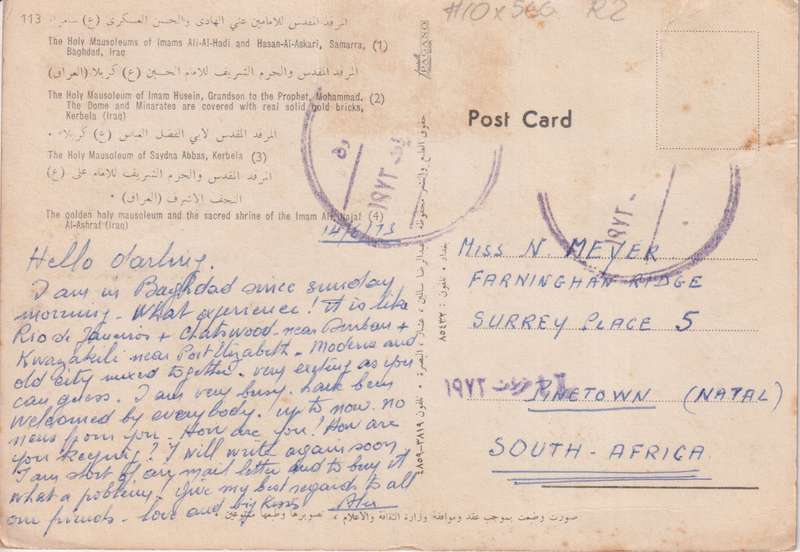 113
المرقد المقدس للامامين علي الهادي والحسن العسكري (ع) سامراء
The Holy Mausoleums of Imams Ali-Al-Hadi and Hasan-Al-Askari, Samarra, (1)
Baghdad, Iraq
المرقد المقدس والحرم الشريف للامام الحسين (ع) كربلا (العراق)
The Holy Mausoleum of Imam Husein, Grandson to the Prophet, Mohammad. (2)
The Dome and Minarates are covered with real solid gold bricks,
Kerbela (Iraq)
المرقد المقدس لابي الفضل العباس (ع) كربلاء •
The Holy Mausoleum of Saydna Abbas, Kerbela (3)
المرقد المقدس والحرم الشريف للامام علي (ع)
النجف الاشرف (العراق) •
The golden holy mausoleum and the sacred shrine of the Imam Ali, Najaf (4)
Al-Ashraf (Iraq)
14/6/73
Hello darling.
I am in Baghdad since sunday
morning. What experience! It is like
Rio de Janeiros + Chatswood near Durban +
Kwazakeli near Port Elizabeth. Moderne and
old city mixed together. very exiting as you
can guess. I am very busy. have been
welcomed by everybody. up to now no
news from you. How are you! How are
you keeping? I will write again soon
I am short of air mail letter and to buy it
what a problem. Give my best regards to all
our friends. love and big kisses
#10 x 500 R2
PAGANO
Post Card
١٩٧٣
١٩٧٣
MISS N. MEYER
FARNINGHAN RIDGE
SURREY PLACE 5
١٩٧٣
PINETOWN (NATAL)
SOUTH-AFRICA
حقوق الطبع والنشر محفوظة
بغداد ، تلفون : ٨٥٤٣٢
تلفون ٣٨١٩-٤٨٥٩
صورت وطبعت بموجب عقد وموافقة وزارة الثقافة والاعلام ،